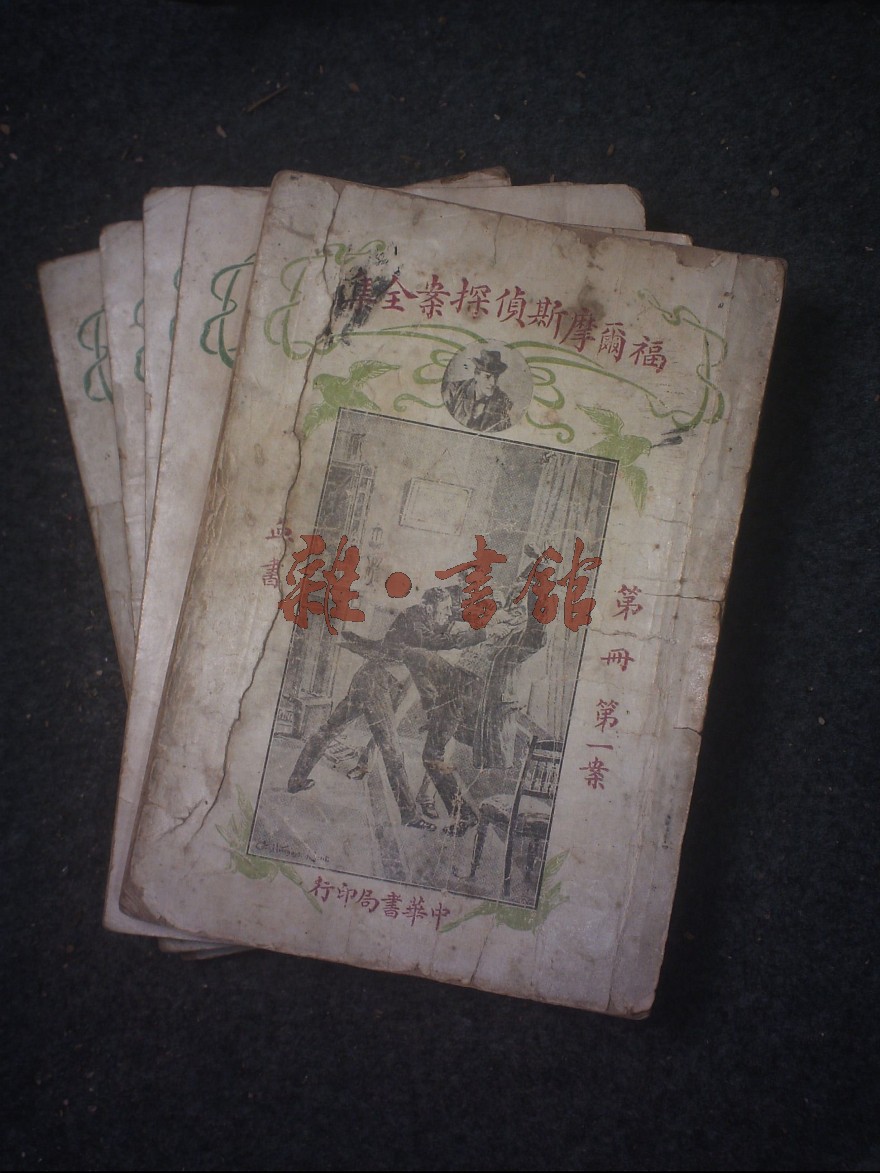 福爾摩斯偵探案全集
第一冊 第一案
血書
中華書局印行
雜·書館